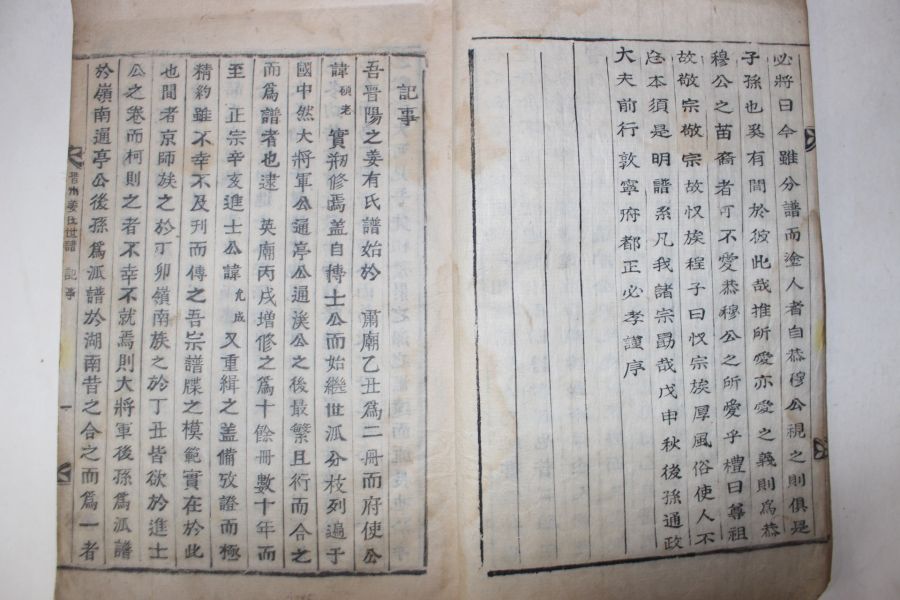 必將曰今雖分譜而塗人者自恭穆公視之則俱是
子孫也奚有間於彼此哉推所愛亦愛之義則為恭
穆公之苗裔者可不愛恭穆公之所愛乎禮曰尊祖
故敬宗敬宗故收族程子曰收宗族厚風俗使人不
忘本須是明譜系凡我諸宗勗哉戊申秋後孫通政
大夫前行敦寧府都正必孝謹序
記事
吾晋陽之姜有氏譜始於 肅廟乙丑為二冊而府使公
諱碩老實刱修焉盖自博士公而始繼世派分枝列遍于
國中然大將軍公通亭公通溪公之後最繁且衍而合之
而為譜者也逮 英廟丙戌增修之為十餘冊數十年而
至 正宗辛亥進士公諱允成又重緝之盖備攷證而極
精約雖不幸不及刊而傳之吾宗譜牒之模範實在於此
也間者京師族之於丁卯嶺南族之於丁丑皆欲於進士
公之卷而柯則之者不幸不就焉則大將軍後孫為派譜
於嶺南通亭公後孫為派譜於湖南昔之合之而為一者
晋州姜氏世譜 記事 一